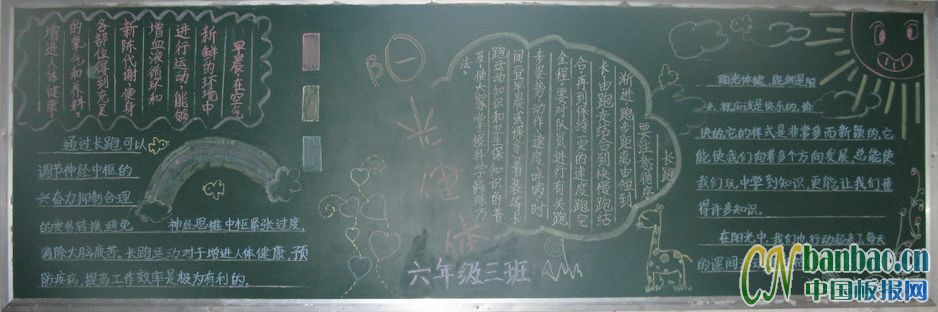 早晨在空气
新鲜的环境中
进行运动,能够
增血液循环和
新陈代谢,使身
各部位得到充足
的氧气和养料。
增进人体健康
通过长跑可以
调节神经中枢的
兴奋力抑制合理
的交替转换,避免
神经思维中枢紧张过度,
消除大脑疲苦。长跑运动对于增进人体健康,预
防疾病,提高工作效率是极为有利的。
阳光健体
六年级三班
长跑
要注意循序
渐进,跑步距离由短到
长由跑走结合到快慢跑结
合,再到保持一定的速度跑完
全程,要对队员进行有关跑
步姿势、动作、速度、呼吸、时
间宜早晨或课余、着装等长
跑运动知识和卫保知识的普
及,使大家掌握科学锻炼方
法。
阳光体健,既然是阳
光,就应该是快乐的,愉
快的,它的样式是非常多而新颖的,它
能使我们向着多个方向发展,总能使
我们玩中学到知识,更能让我们懂
得许多知识。
在阳光中,我们也行动起来了,每天
的课间
CN banbao.cn
中国板报网